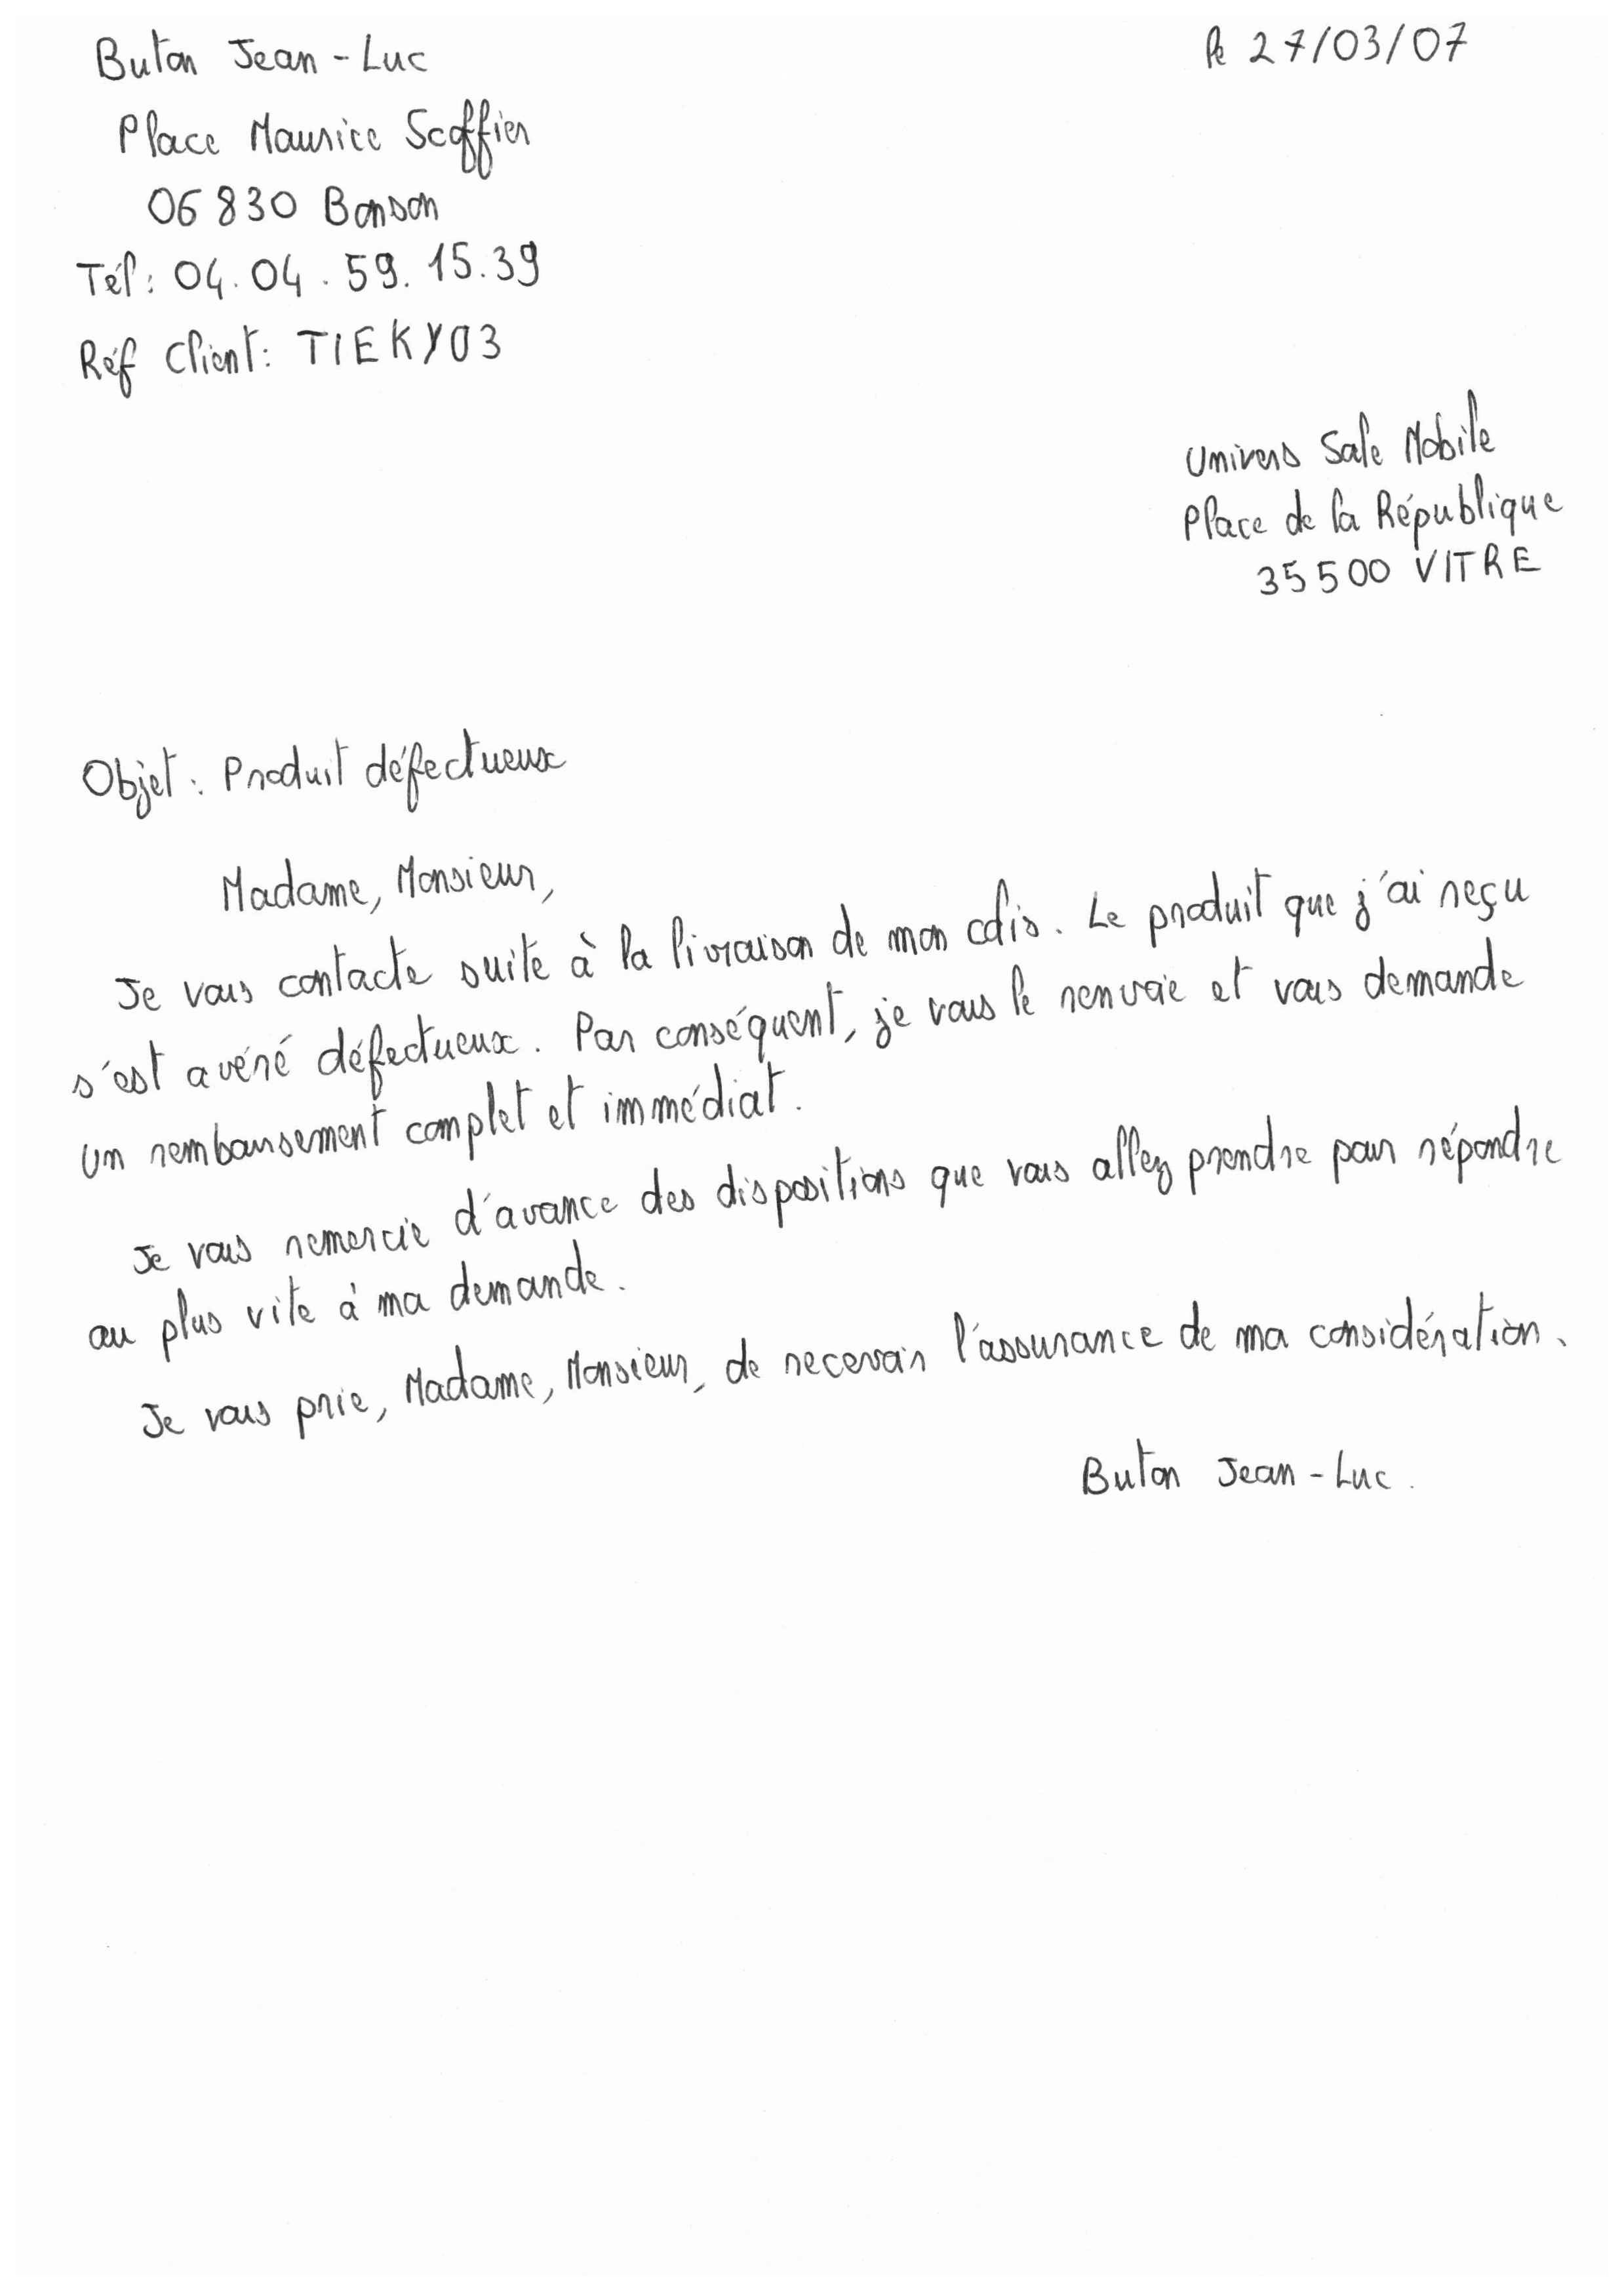 Buton Jean-Luc
le 27/03/07
Place Maurice Scoffier
06830 Bonson
Tél: 04.04.59.15.39
Réf Client: TIEKY03
Univers Sale Mobile
Place de la République
35500 VITRE
Objet: Produit défectueux
Madame, Monsieur,
Je vous contacte suite à la livraison de mon colis. Le produit que j'ai reçu
s'est avéré défectueux. Par conséquent, je vous le renvoie et vous demande
un remboursement complet et immédiat.
Je vous remercie d'avance des dispositions que vous allez prendre pour répondre
au plus vite à ma demande.
Je vous prie, Madame, Monsieur, de recevoir l'assurance de ma considération.
Buton Jean-Luc.